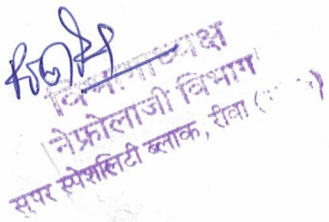 विभागाध्यक्ष
नेफ्रोलाजी विभाग
सुपर स्पेशलिटी ब्लाक, रीवा